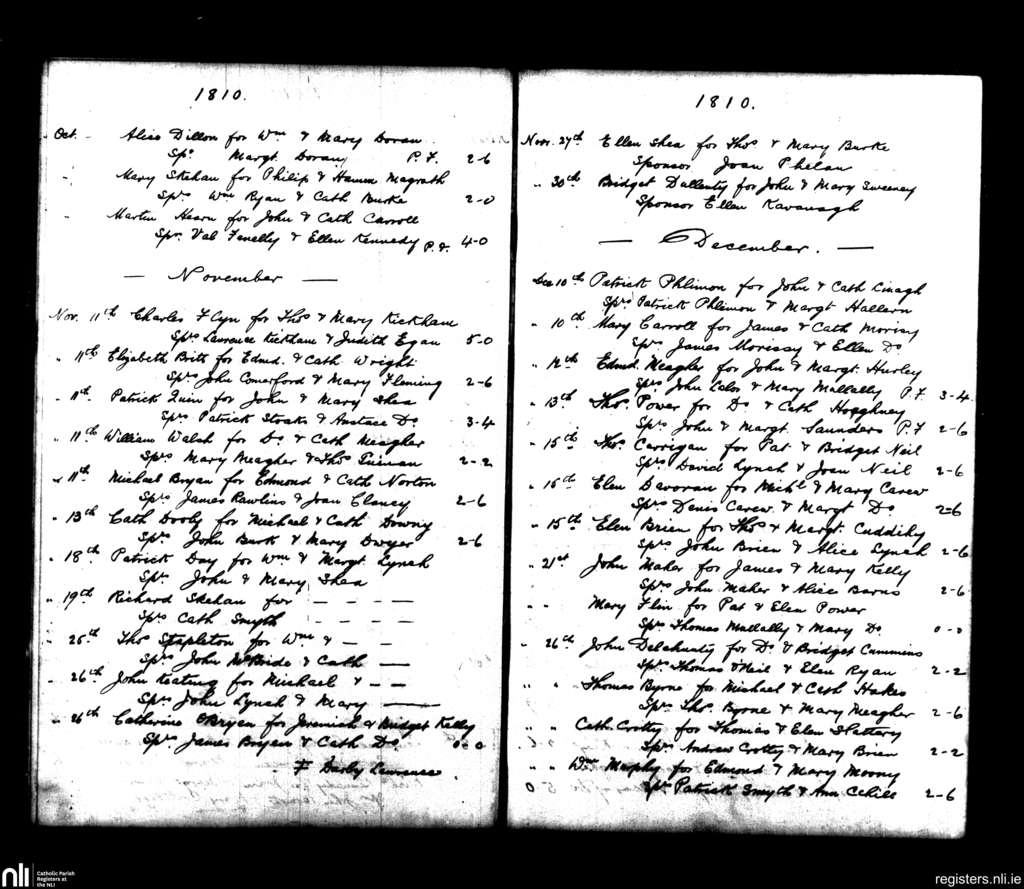 1810.
Oct. - Alice Dillon for Wm & Mary Doran
Spr. Margt. Doran P.F. 2-6
" Mary Skehan for Philip & Hanna Magrath
Sprs Wm Ryan & Cath Burke 2-0
" Martin Hearn for John & Cath Carroll
Sprs Val Fenelly & Ellen Kennedy P.F. 4-0
— November —
Nov. 11th Charles Flyn for Thos & Mary Kickham
Sprs Lawrence Kickham & Judith Egan 5-0
" 11th Elizabeth Britt for Edmd. & Cath Wright
Sprs John Comerford & Mary Fleming 2-6
" 11th Patrick Quin for John & Mary Shea
Sprs Patrick & Anstace Do 3-4
" 11th William Walsh for Do & Cath Meagher
Sprs Mary Meagher & Thos 2-2
" 11th Michael Bryan for Edmond & Cath Norton
Sprs James Rawlins & Joan Clancy 2-6
" 13th Cath Dooly for Michael & Cath
Sprs John Burk & Mary Dwyer 2-6
" 18th Patrick Day for Wm & Margt. Lynch
Sprs John & Mary Shea
" 19th Richard Skehan for - - - -
Sprs Cath Smyth - - - -
" 25th Thos Stapleton for Wm & - -
Sprs John McBride & Cath —
" 26th John Keating for Michael & - -
Sprs John Lynch & Mary —
" 26th Catherine OBryen for Jeremiah & Bridget Kelly
Sprs James Bryan & Cath Do. 0-0
F Darby Lawrence.
1810.
Nov. 27th Ellen Shea for Thos & Mary Burke
Sponsor Joan Phelan
" 30th Bridget Dullenty for John & Mary Sweeney
Sponsor Ellen Kavanagh
— December. —
Dec 10th Patrick Phlimon for John & Cath
Sprs Patrick Phlimon & Margt Hallern
" 10th Mary Carroll for James & Cath Morissy
Sprs James Morissy & Ellen Do
" 12th Edmd. Meagher for John & Margt. Hurley
Sprs John & Mary Mallally P.F. 3-4
" 13th Thos. Power for Do & Cath
Sprs John & Margt. Saunders P.F 2-6
" 15th Thos. Carrigan for Pat & Bridget Neil
Sprs David Lynch & Joan Neil 2-6
" 16th Elen Davoran for Michl & Mary Carew
Sprs Denis Carew & Margt Do 2-6
" 15th Elen Brien for Thos & Margt. Cuddihy
Sprs John Brien & Alice Lynch 2-6
" 21st John Maher for James & Mary Kelly
Sprs John Maher & Alice Barns 2-6
" " Mary Flin for Pat & Elen Power
Sprs Thomas Mullally & Mary Do 0-0
" 26th John Delahunty for Do & Bridget Cummins
Sprs Thomas ONeil & Elen Ryan 2-2
" " Thomas Byrne for Michael & Cath Hakes
Sprs Thos. Byrne & Mary Meagher 2-6
" " Cath Crotty for Thomas & Elen Slattery
Sprs Andrew Crotty & Mary Brien 2-2
" " Wm Murphy for Edmond & Mary Moony
0 Sprs Patrick Smyth & Ann Cahill 2-6
nli Catholic Parish
Registers at
the NLI
registers.nli.ie